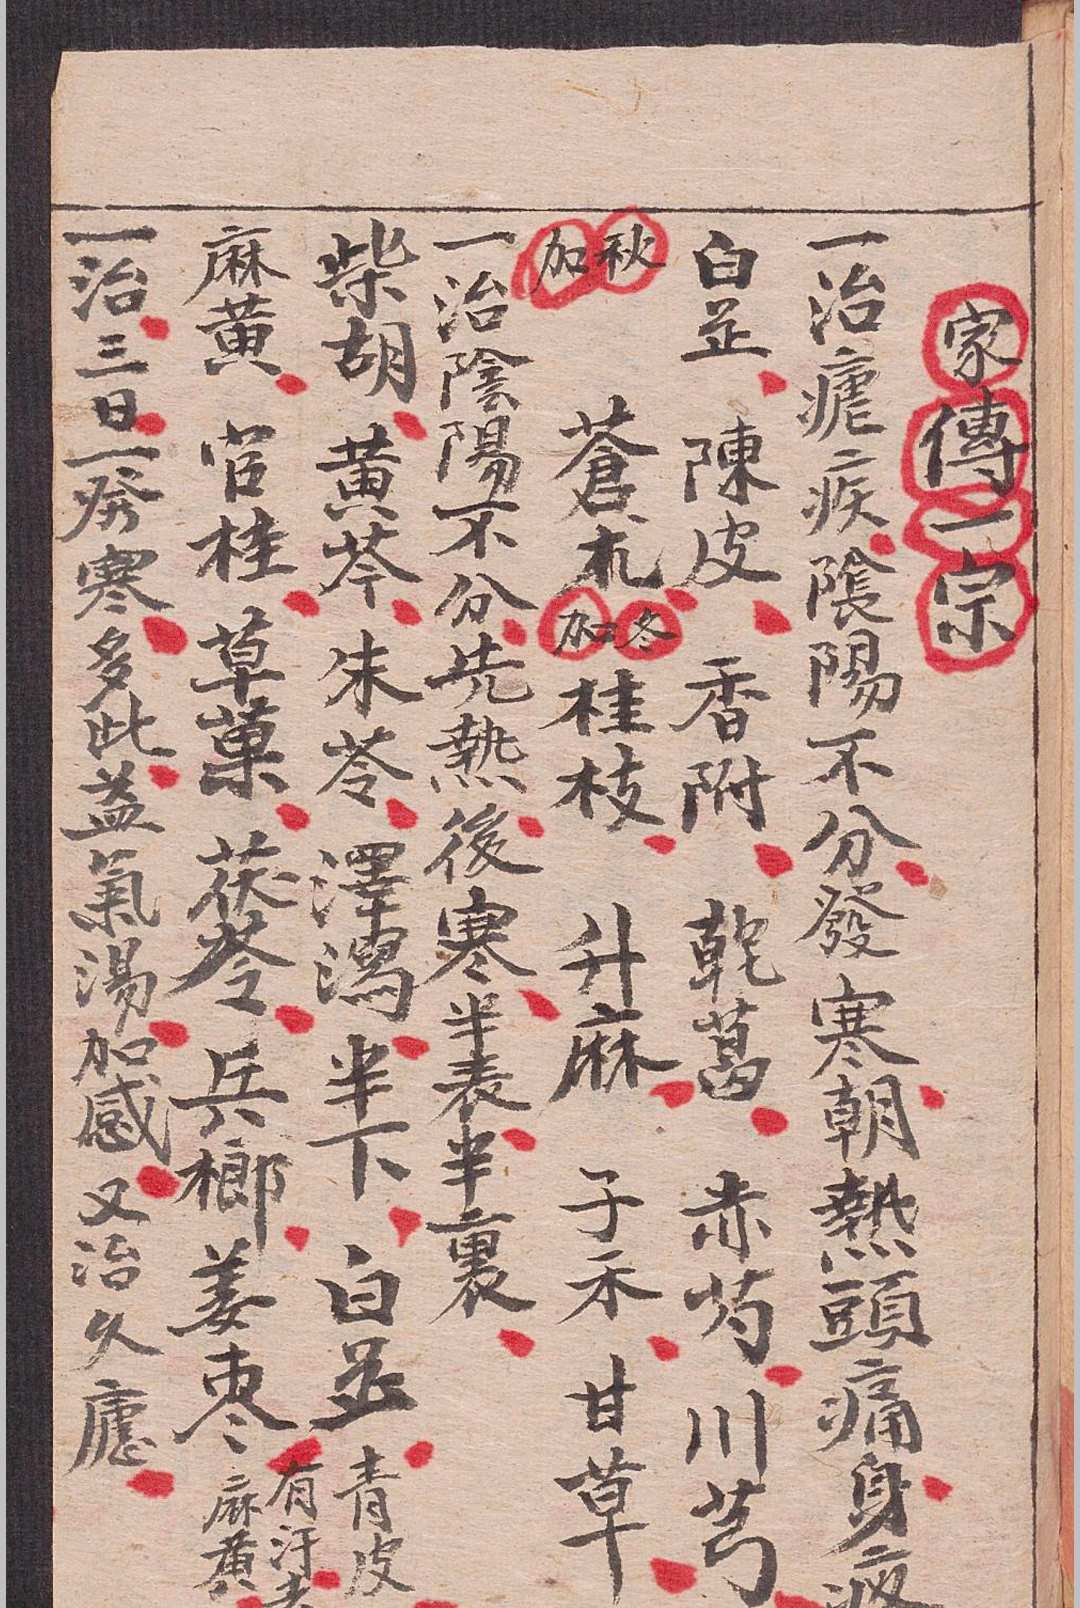 家傳一宗
一治瘧疾陰陽不分發寒朝熱頭痛身
白芷 陳皮 香附 乾葛 赤芍 川芎
秋加 蒼朮 冬加 桂枝 升麻 子禾 甘草
一治陰陽不分先熱後寒半表半裏
柴胡 黃芩 朱苓 澤瀉 半下 白芷 青皮
麻黃 官桂 草菓 茯苓 兵榔 姜枣 有汗 麻黃
一治三日一發寒多此益氣湯加感又治久瘧